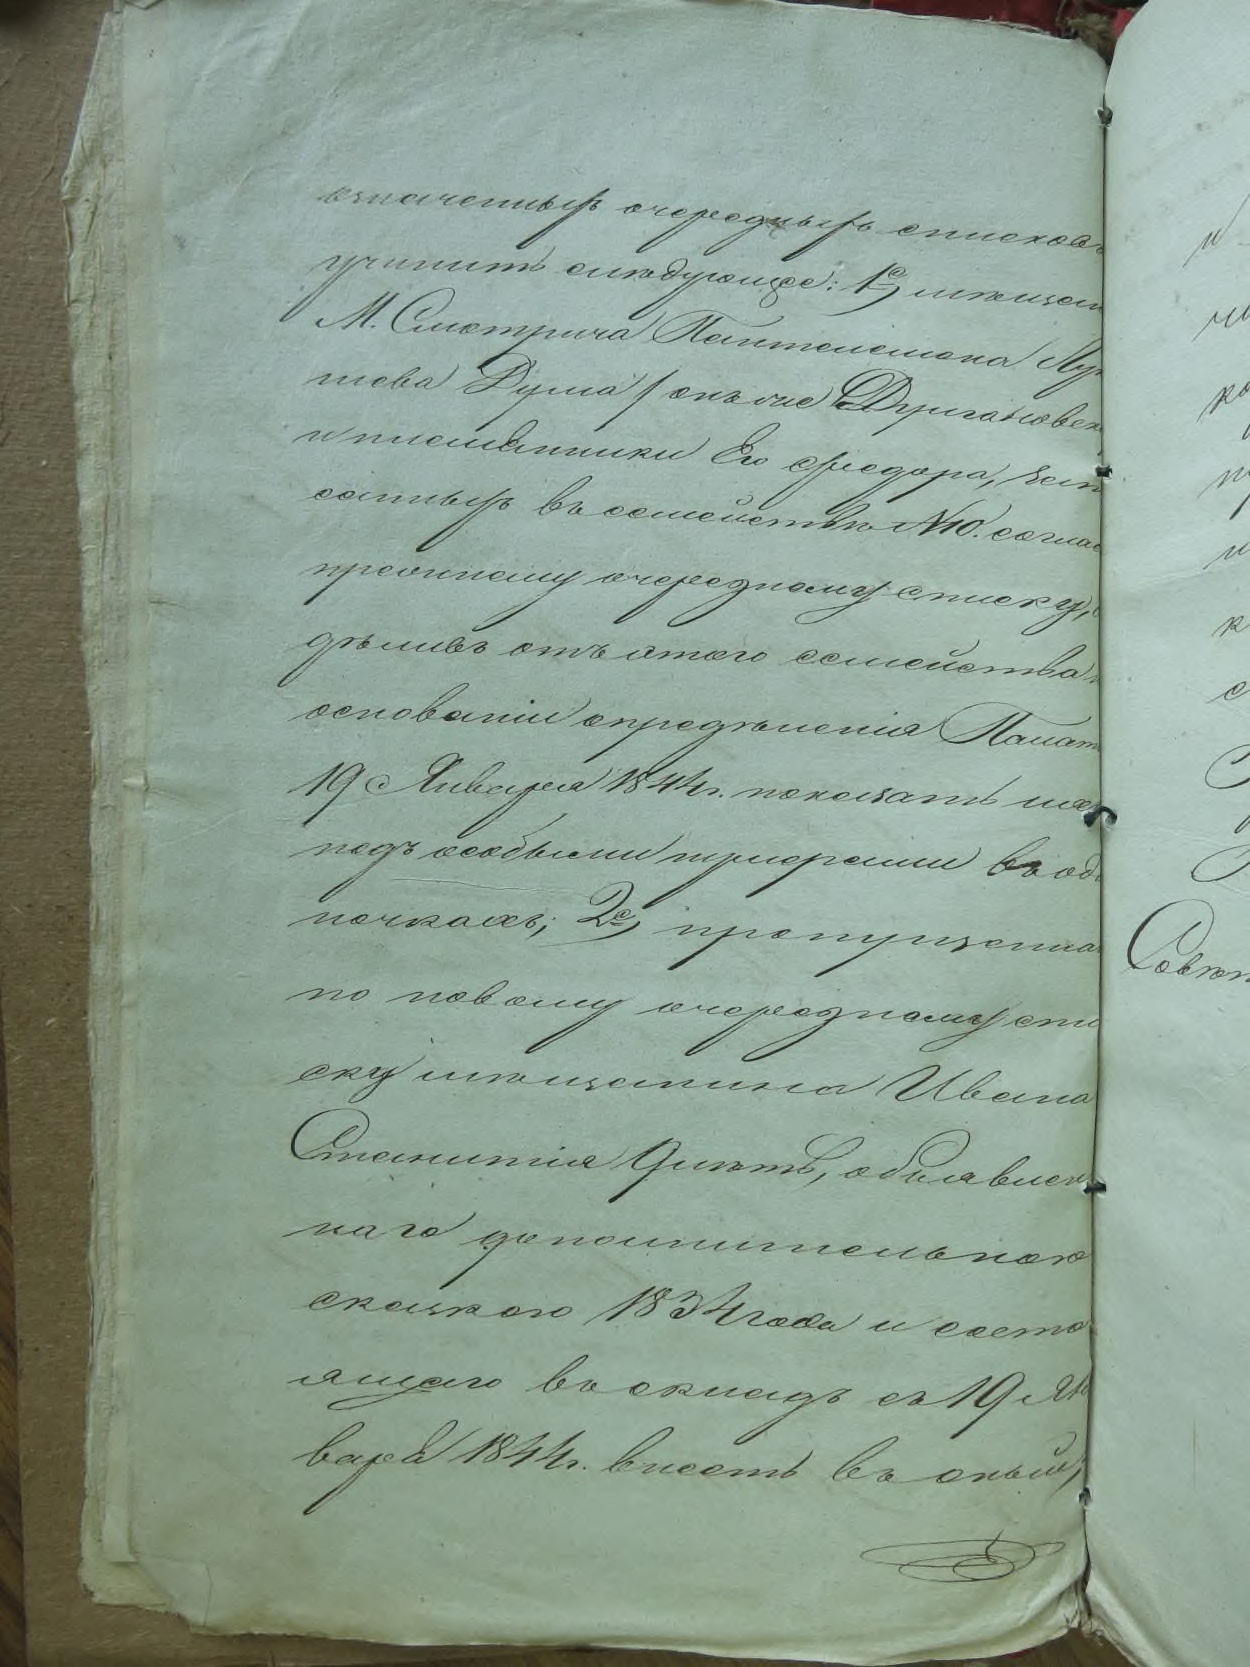 означенныхъ очередныхъ списковъ
учинить слѣдующее: 1е) мѣщан
М. Смотрича Пантелемона Лук
това Дума / онъ же Дурган
и племянники Его Федора, запи
санныхъ въ семействѣ №10. соглас
прежнему очередному списку,
дѣливъ отъ этого семейства н
основаніи опредѣленія Палат
19 Января 1844г. показать их
подъ особыми нумерами въ оди
ночкахъ; 2е) пропущенна
по новому очередному спи
ску мѣщанина Ивана
объявлен
наго дополнительною
сказкою 1834 года и состо
ящаго въ окладѣ съ 19 Ян
варя 1844г. внесть въ оный;
и
ко
и
к
с